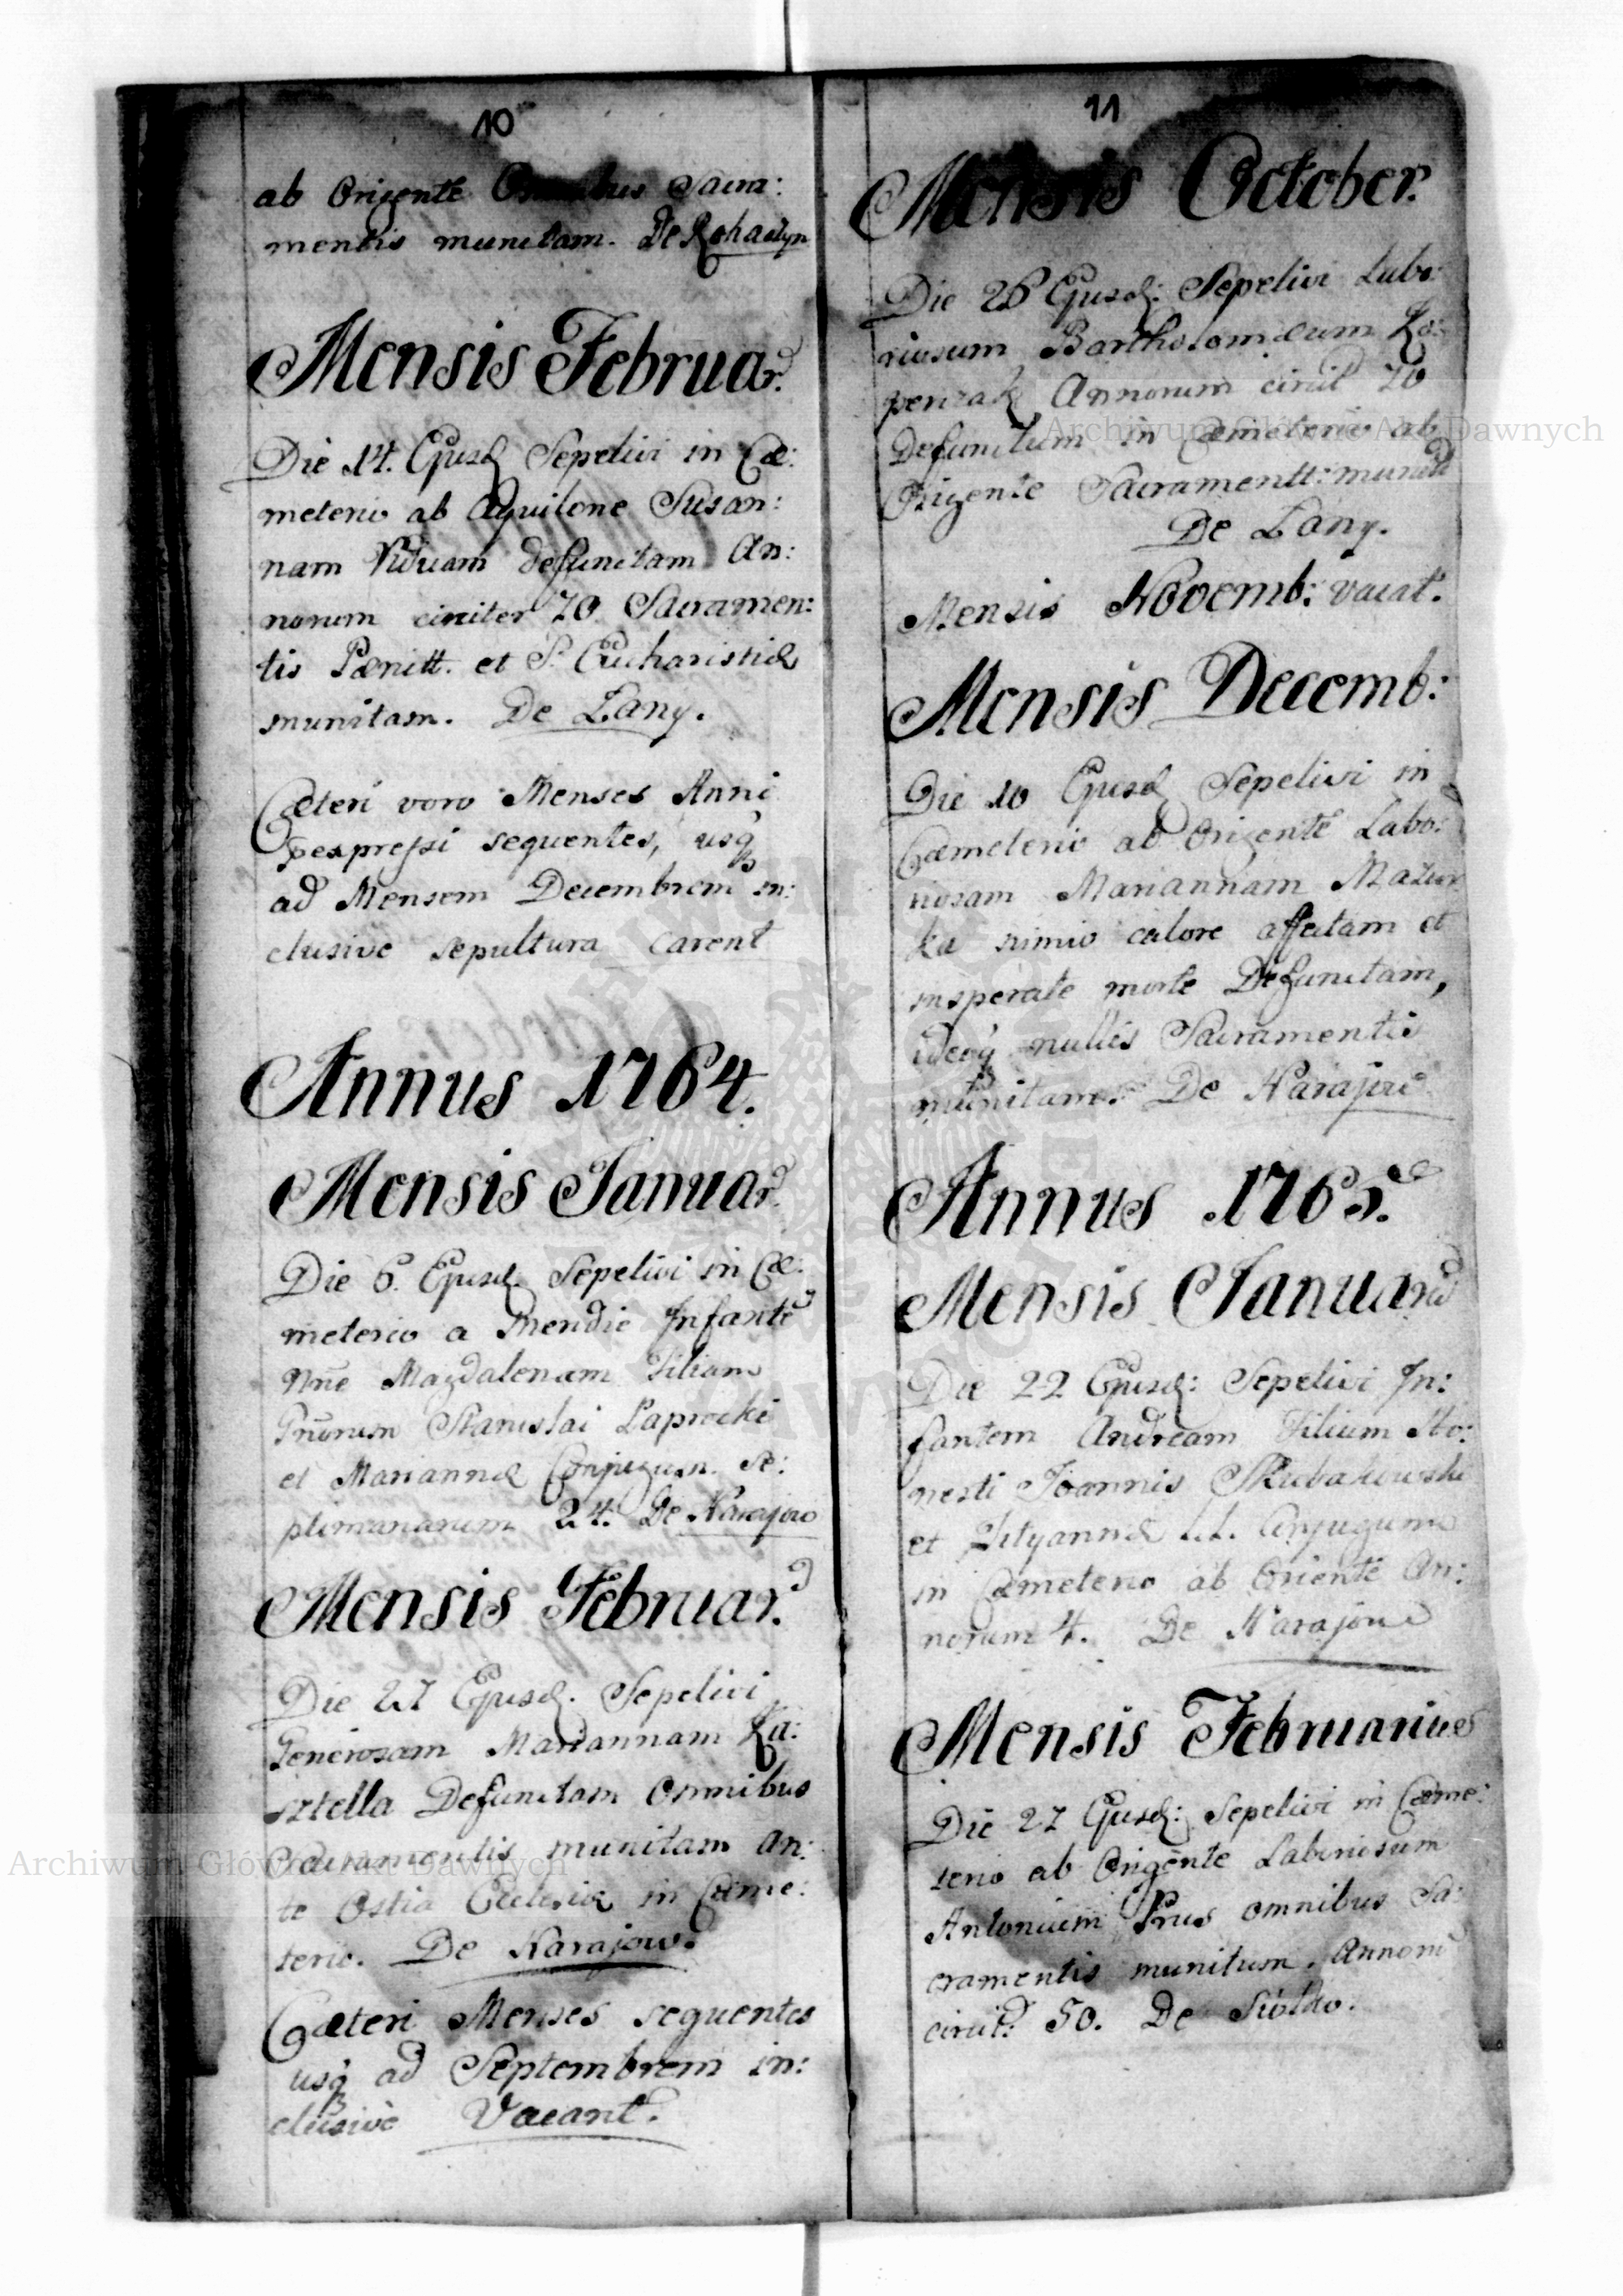 10
ab Origente Omnibus Sacra:
mentis munitam. De Rohactyn
Mensis Februar.
Die 14. Ejusd Sepelivi in Cæ:
meterio ab Aquilone Susan:
nam Viduam defunctam An:
norum circiter 70 Sacramen:
tis Pænitt. et S. Eucharistiæ
munitam. De Łany.
Cæteri vero Menses Anni
expressi sequentes, usq
ad Mensem Decembrem in:
clusive sepultura carent
Annus 1764.
Mensis Januar.
Die 6. Ejusd. Sepelivi in Cæ:
meterio a Meridie Infante
Nne Magdalenam Filiam
Gnorum Stanislai Paprocki
et Mariannæ Conjugum. Se:
ptimanarum 24. De Narajow
Mensis Februar.
Die 27 Ejusd. Sepelivi
Generosam Mariannam Ka:
sztella Defunctam Omnibus
Sacramentis munitam an:
te Ostia Ecclesiæ in Cæme:
terio. De Narajow.
Cæteri Menses sequentes
usq ad Septembrem in:
clusive Vacant.
11
Mensis October.
Die 26 Ejusd: Sepelivi Labo:
riosum Bartholomæum Ko:
penzak Annorum circit 70
Defunctum in Cæmeterio ab
Origente Sacramentt: munit
De Łany.
Mensis Novemb: vacat.
Mensis Decemb:
Die 10 Ejusd Sepelivi in
Cæmeterio ab Origente Labo:
riosam Mariannam Mazur
ka nimio calore affectam et
insperate morte Defunctam,
ideoq nullis Sacramentis
munitam. De Narajow
Annus 1765.
Mensis Januarii
Die 22 Ejusd: Sepelivi In:
fantem Andream Filium Ho:
nesti Joannis
et LL. Conjugum
in Cæmeterio ab Oriente An:
norum 4. De Narajow
Mensis Februarius
Die 27 Ejusd: Sepelivi in Cæme:
terio ab Origente Laboriosum
Antonium Prus omnibus Sa:
cramentis munitum. Annoru
circit: 50. De
Archiwum Główne Akt Dawnych
Archiwum Główne Akt Dawnych